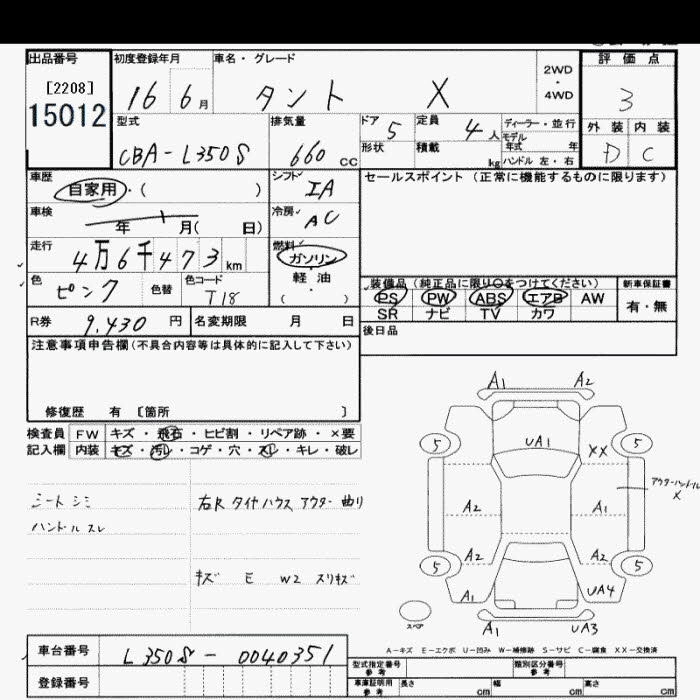 出品番号 初度登録年月 車名・グレード 2WD・4WD 評価点
[2208]
15012 16 6月 タント X 3
外装 内装
D C
型式 排気量 ドア 5 定員 4人 ディーラー・並行
モデル年式 年
CBA-L350S 660cc 形状 積載 kg ハンドル 左・右
車歴 シフト セールスポイント (正常に機能するものに限ります)
自家用・( ) IA
車検 年 月( 日) 冷房 AC
走行 燃料
4万6千473km ガソリン・軽油
( )
色 ピンク 色替 色コード T18
装備品 (純正品に限り○をつけてください) 新車保証書
PS PW ABS エアB AW 有・無
SR ナビ TV カワ
R券 9,430円 名変期限 月 日 後日品
注意事項申告欄(不具合内容等は具体的に記入して下さい)
修復歴 有 〔箇所 〕
検査員 FW キズ・飛石・ヒビ割・リペア跡・×要
記入欄 内装 キズ・汚れ・コゲ・穴・スレ・キレ・破レ
シートシミ
ハンドルスレ
右R タイヤハウス アウター 曲り
キズ E W2 スリキズ
A1 A2
5 UA1 XX 5
アウターハンドル
X
A2 A1
5 A2 A2 5
A1 UA4
スペア
A1 UA3
A-キズ E-エクボ U-凹み W-補修跡 S-サビ C-腐食 XX-交換済
車台番号 L350S-0040351
登録番号
型式指定番号 参考 類別区分番号 参考
車庫証明用 参考 長さ cm 幅 cm 高さ cm